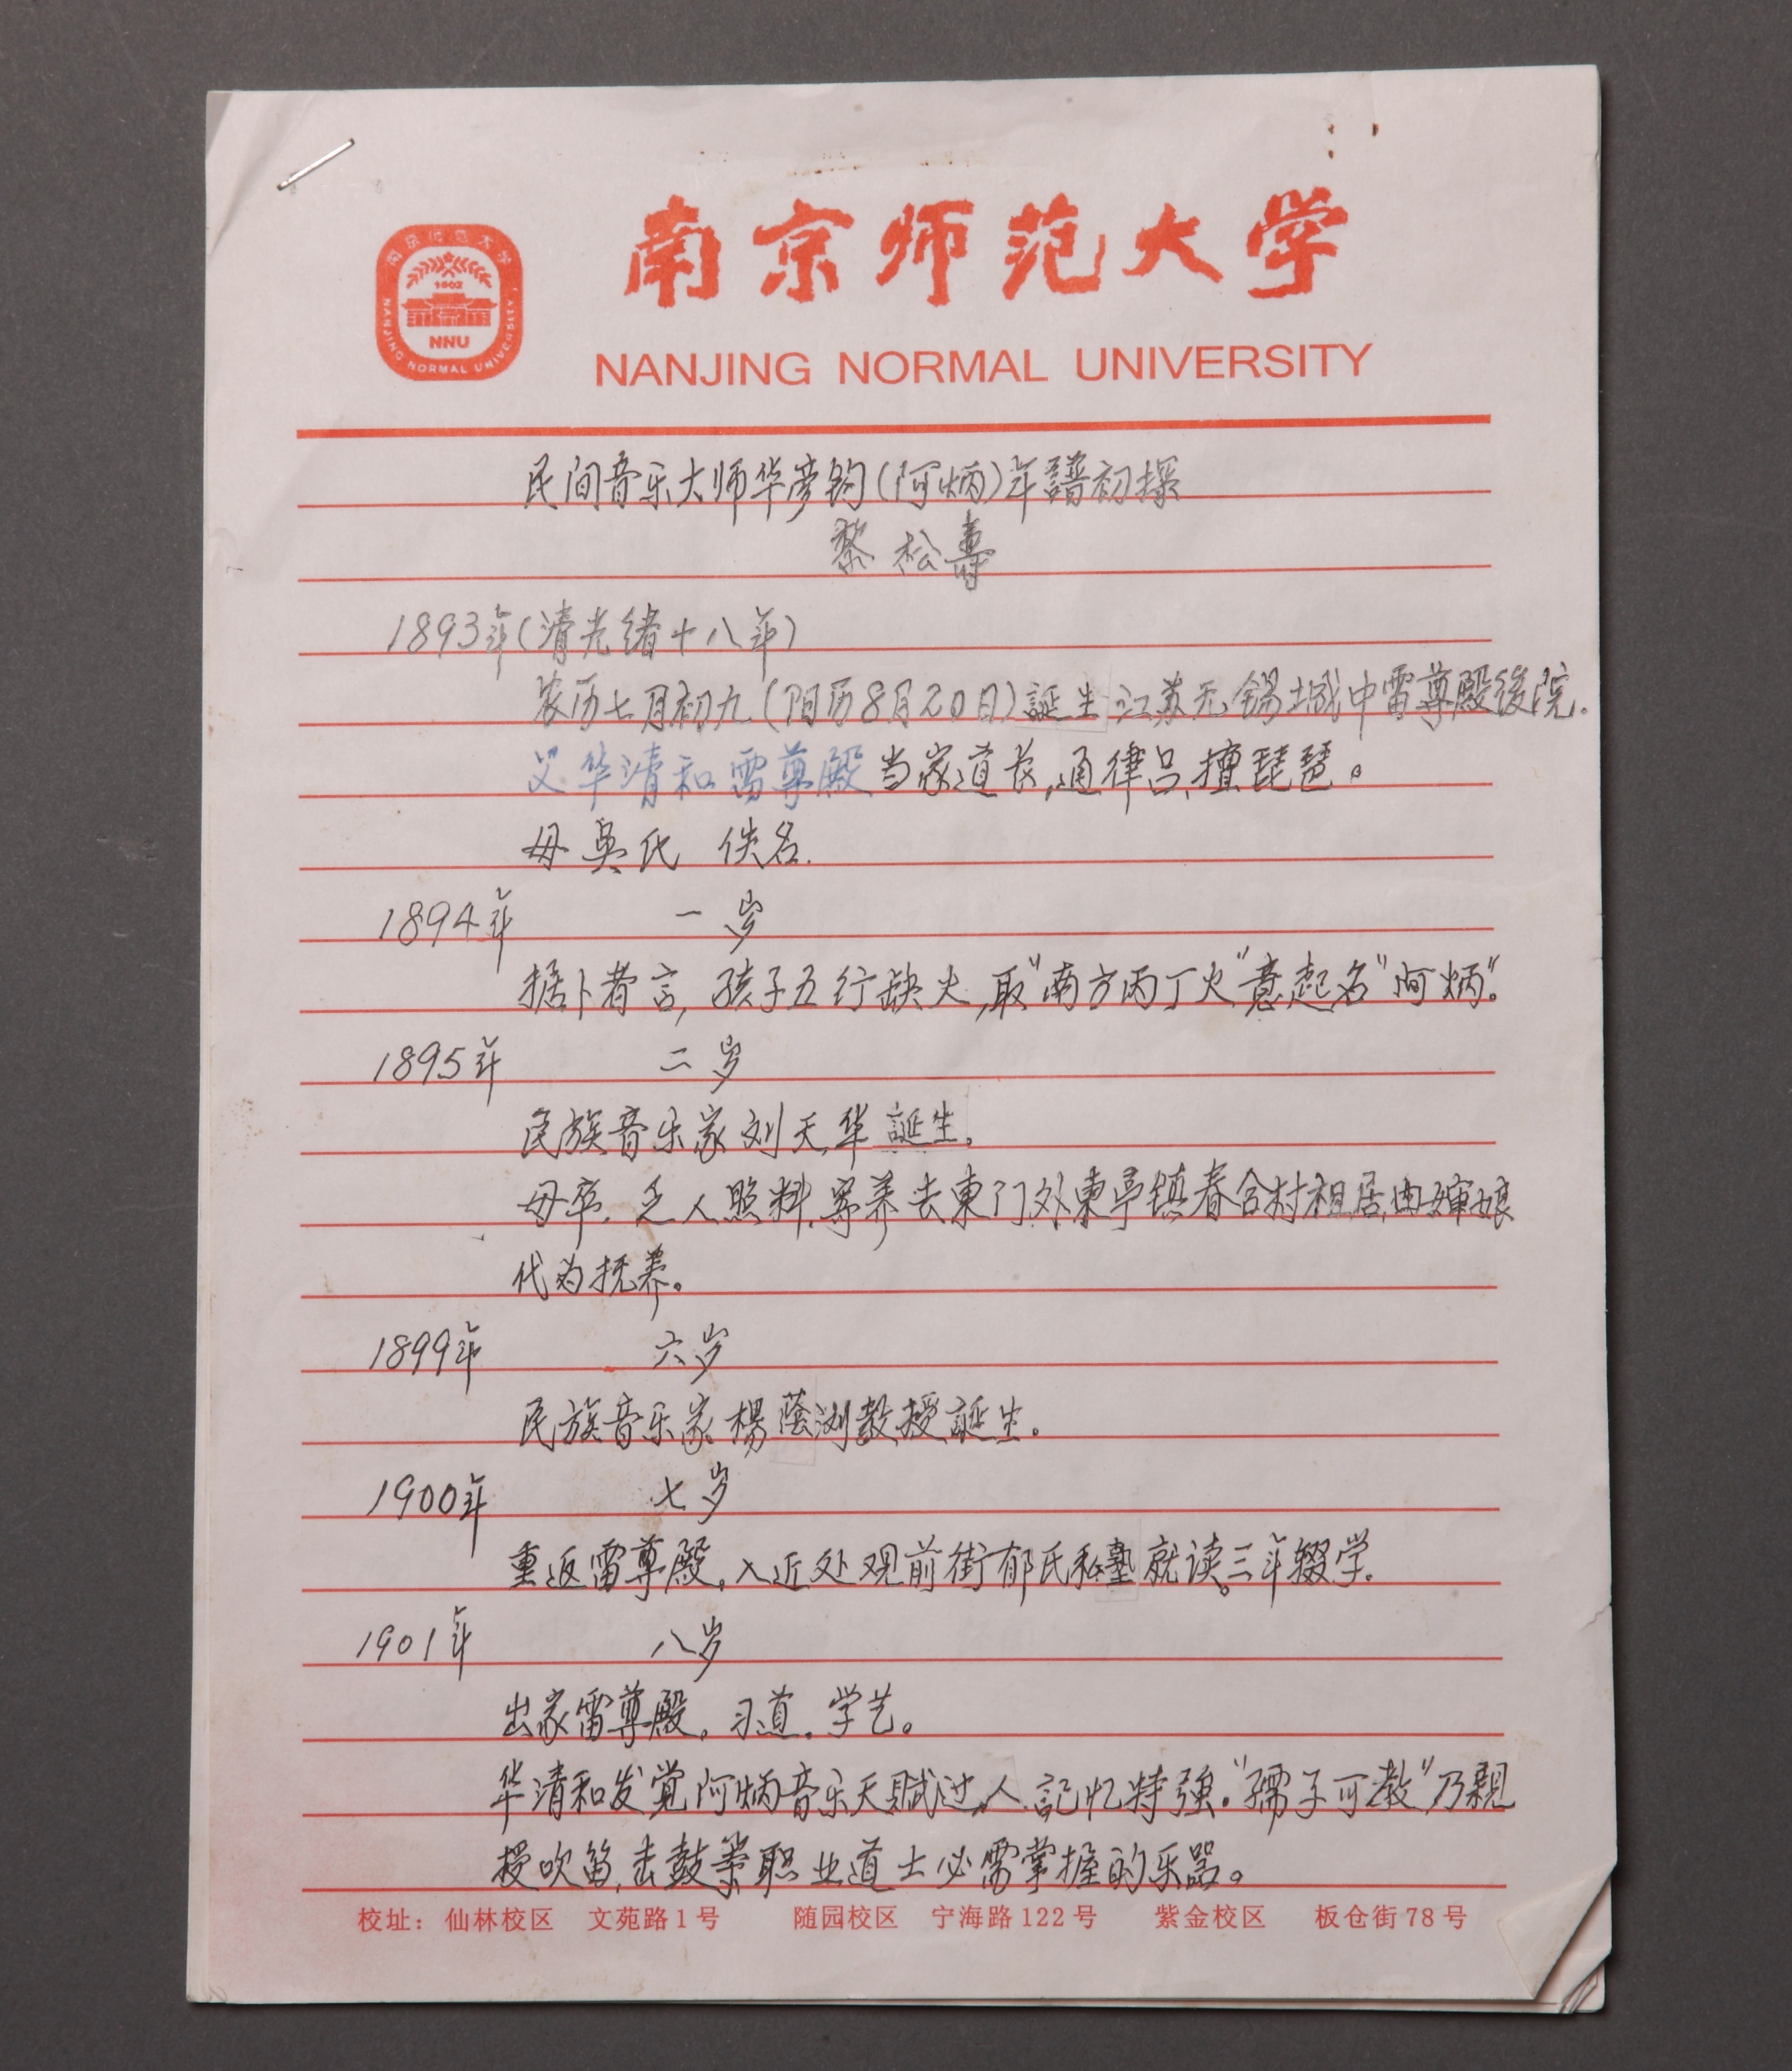 南京师范大学
1902
NNU
NANJING NORMAL UNIVERSITY
南京师范大学
NANJING NORMAL UNIVERSITY
民间音乐大师华彦钧(阿炳)年譜初探
黎松壽
1893年(清光绪十八年)
农历七月初九(阳历8月20日)誕生江苏无锡城中雷尊殿後院.
父华清和雷尊殿当家道长,通律吕、擅琵琶。
母吳氏 佚名.
1894年 一岁
据卜者言,孩子五行缺火,取"南方丙丁火"意,起名"阿炳"。
1895年 二岁
民族音乐家刘天华誕生。
母卒.乏人照料.寄养去東门外東亭镇春合村祖居,由婶娘
代为抚养。
1899年 六岁
民族音乐家楊蔭浏教授誕生。
1900年 七岁
重返雷尊殿。入近处观前街郁氏私塾就读。三年辍学.
1901年 八岁
出家雷尊殿。习道.学艺。
华清和发觉阿炳音乐天赋过人.記忆特強."孺子可教"乃親
授吹笛,击鼓等职业道士必需掌握的乐器。
校址: 仙林校区 文苑路1号 随园校区 宁海路122号 紫金校区 板仓街78号